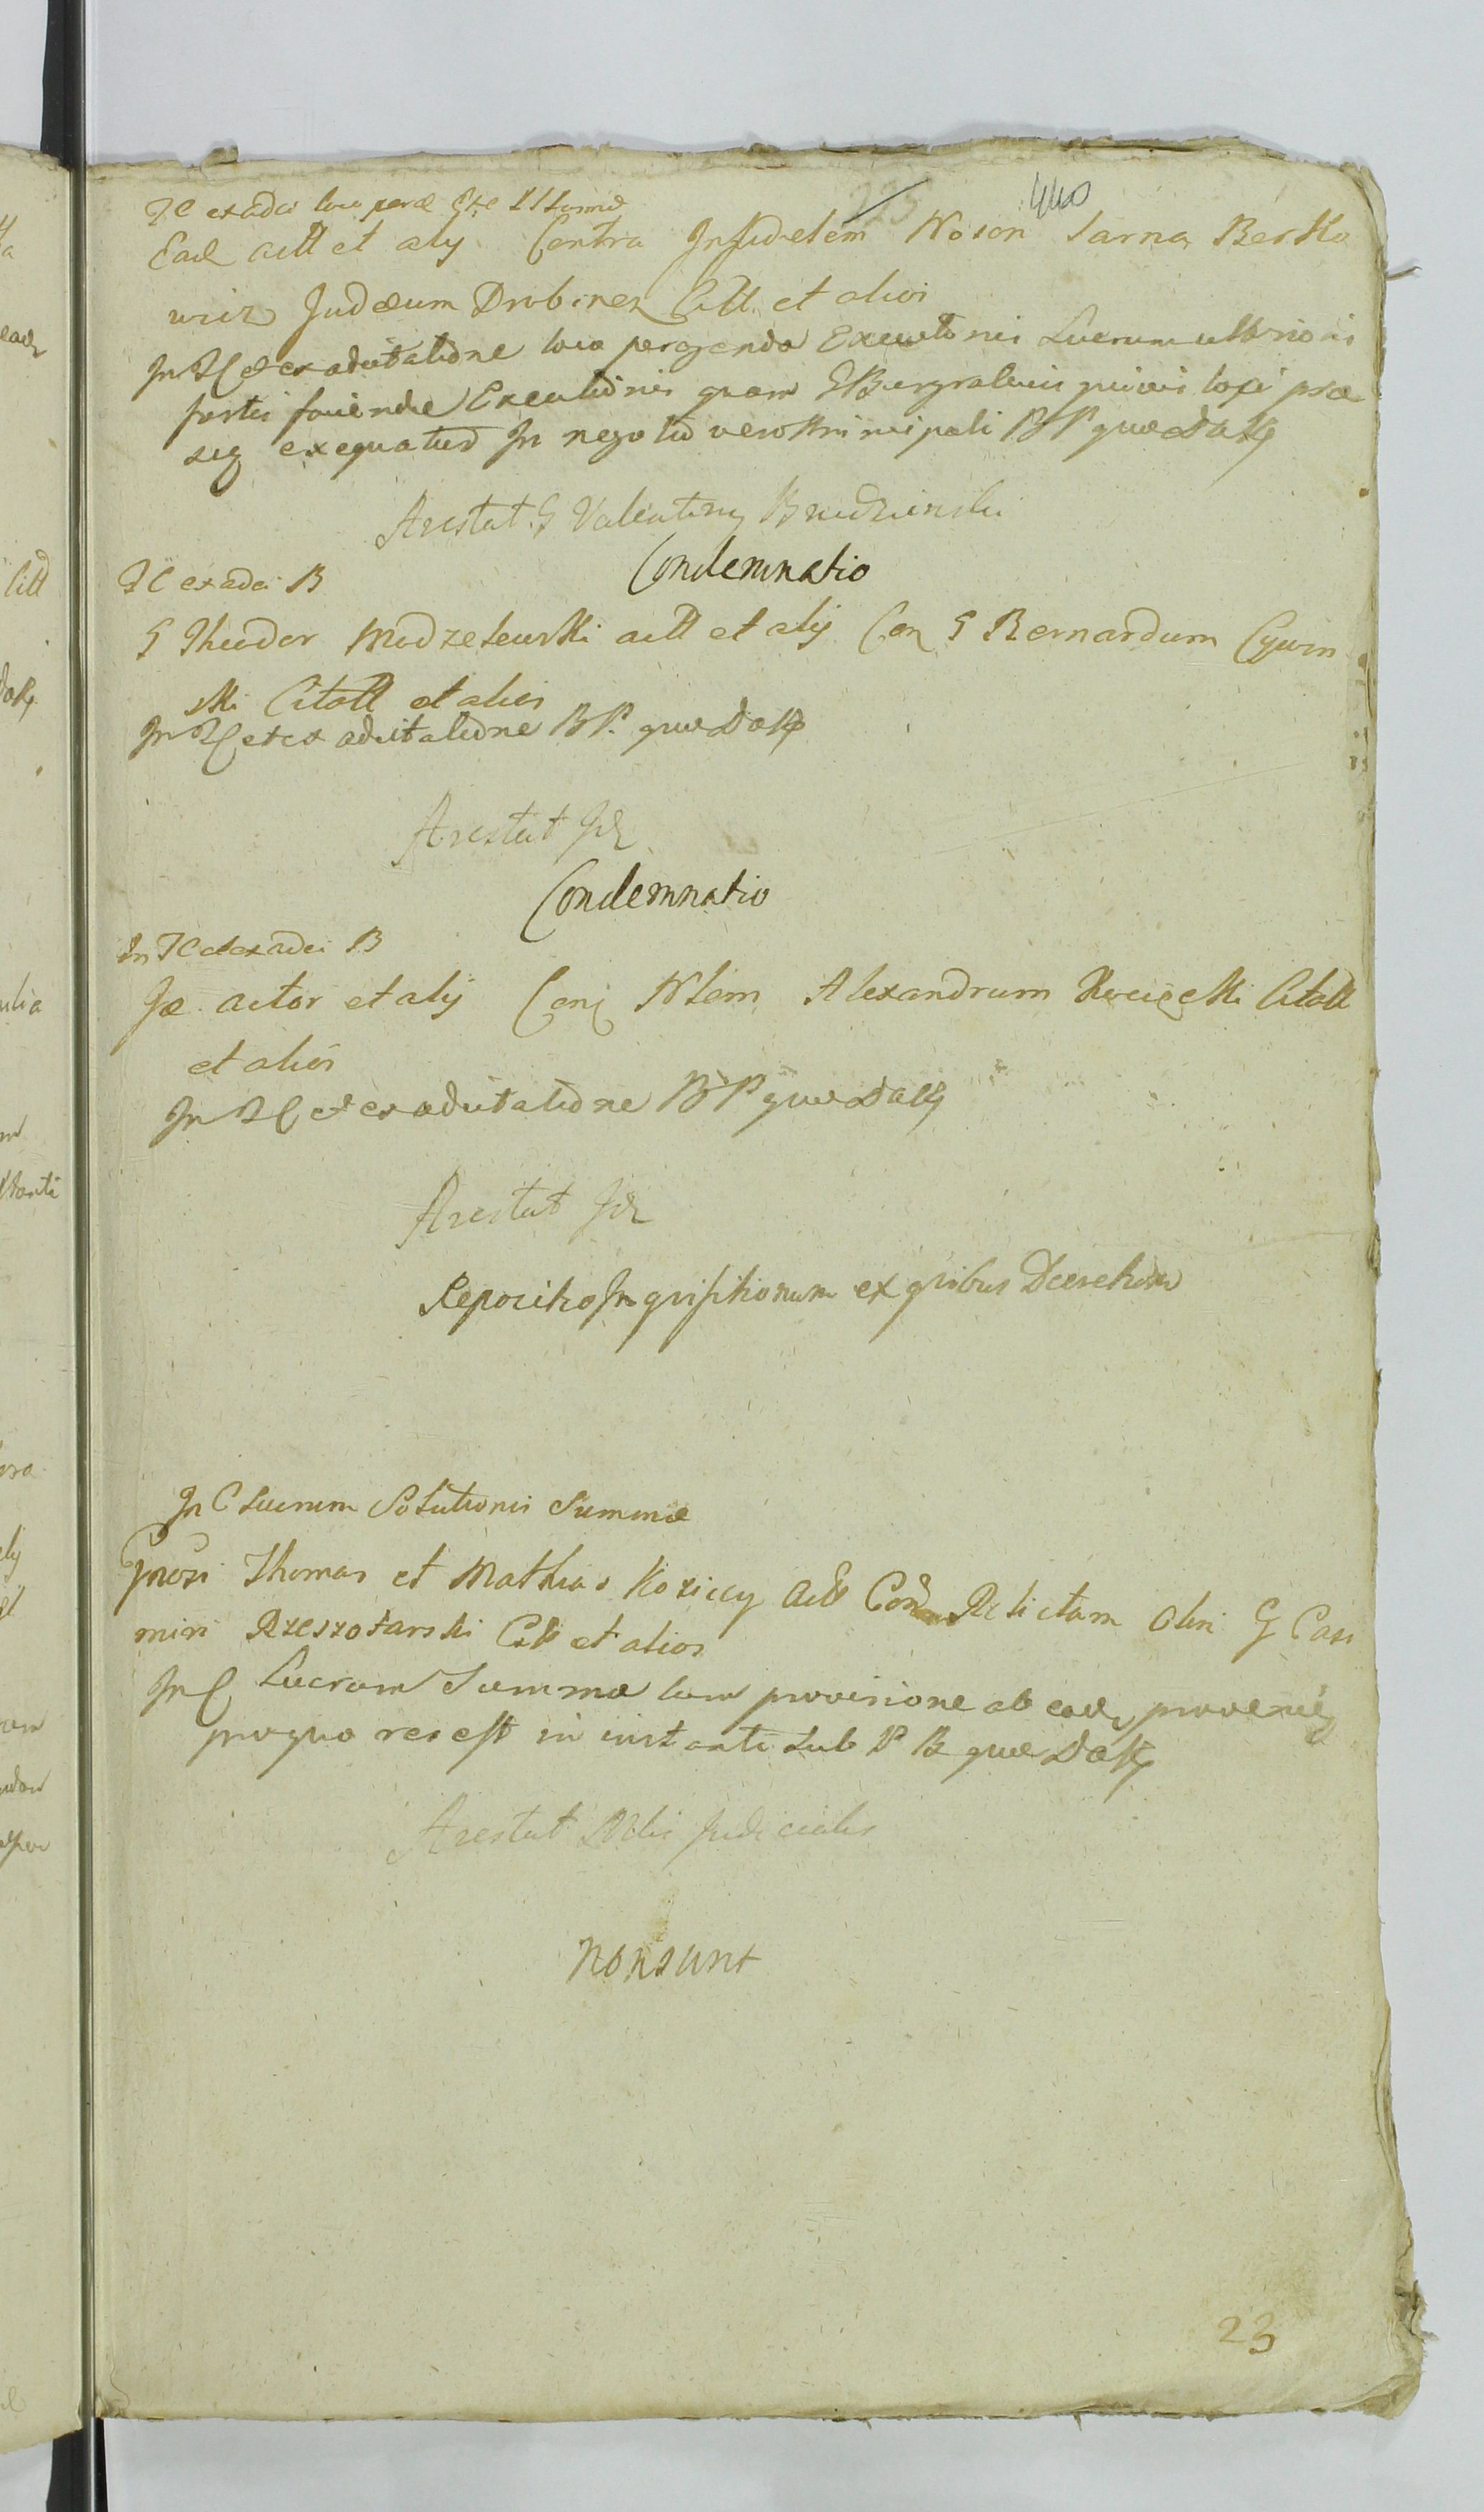 440
Ead actt et alij Contra Infidelem Noson Sarna Berko
wicz Judæum Drobinen Citt et alios
In et ex aducitatione loco peragenda Executionis Lucrum ulterioris
fortis faciendæ Executionis quam GBurgrabius quivis loci præ
seq exequatur In negotio vero Principali BP quæ Daß
Arestat. G Valentinus Brudzinski
Condemnatio
TC ex adci B
G Theodor Modzelewski actt et alij Con G Bernardum Cywin
ski Citatt et alios
In et ex aducitatione BP. quæ Daß
Arestat Id
Condemnatio
In TC et ex adci B
Je actor et alij Con Nlem Alexandrum Kocięcki Citatt
et alios
In et ex aducitatione BP quæ Daß
Arestat Id
Repositio Inquisitionum ex quibus Decretum
In C Lucrum Solutionis Summæ
Gnosi Thomas et Mathias Koziccy actt Con Relictam Olim G Casi
miri Rzeszotarski Citt et alios
In C Lucrum Summæ cum provisione ab eadem provenien
pro quo res est in instanti sub P B quæ Daß
Arestat Mlis Judicialis
Non sunt
23